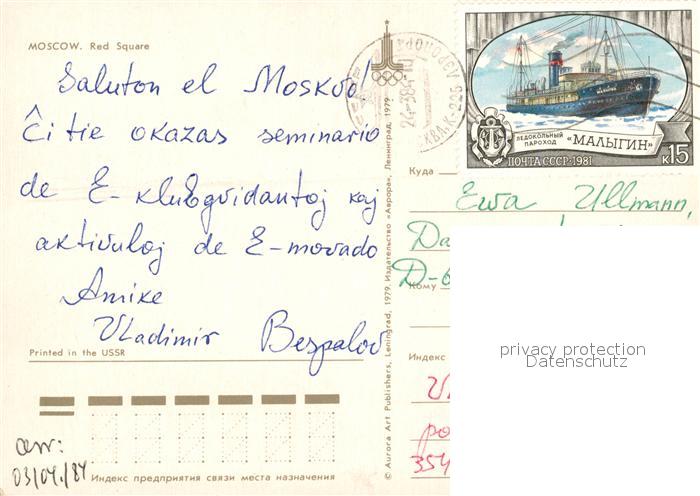 MOSCOW. Red Square
Saluton el Moskvo!
Ĉi tie okazas seminario
de E-klubgvidantoj kaj
aktivuloj de E-movado
Amike
Vladimir Bespalov
Printed in the USSR
Индекс предприятия связи места назначения
03/04/84
© Aurora Art Publishers, Leningrad, 1979. Издательство «Аврора», Ленинград, 1979
ЛЕДОКОЛЬНЫЙ
ПАРОХОД «МАЛЫГИН»
ПОЧТА СССР·1981
к15
Куда
Ewa Ullmann,
Кому
Индекс
354
privacy protection
Datenschutz